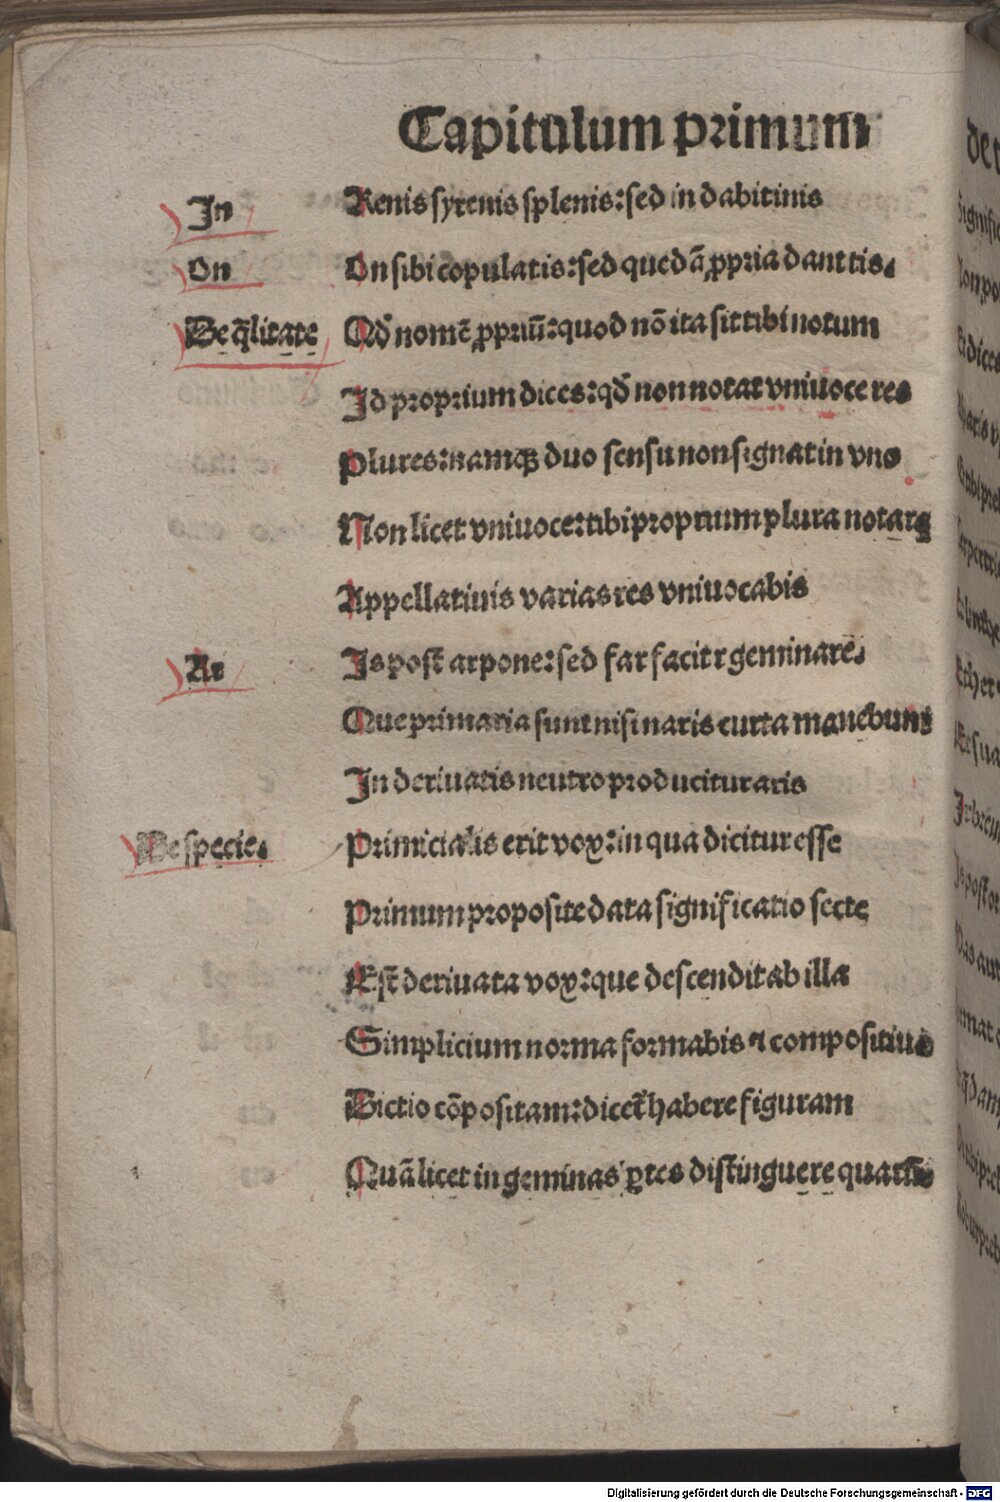 Capitulum primum
In
Renis syrenis splenis: sed in dabit inis
On
On sibi copulat is: sed quedā ꝓpria dant tis.
De q̄litate
Qd̄ nomē ꝓpriū: quod nō ita sit tibi notum
Id proprium dices: qd̄ non notat vniuoce res
Plures: namqꝫ duo sensu non signat in vno
Non licet vniuoce: tibi proprium plura notare
Appellatiuis varias res vniuocabis
Ar
Is post ar pone: sed far facit r geminare.
Que primaria sunt nisi naris curta manebunt
In deriuatis neutro producitur aris
De specie.
Primicialis erit vox: in qua dicitur esse
Primum proposite data significatio secte
Est deriuata vox: que descendit ab illa
Simplicium norma formabis ⁊ compositiua
Dictio cōpositam: dicet̄ habere figuram
Quā licet in geminas ꝑtes distinguere quarū
Digitalisierung gefördert durch die Deutsche Forschungsgemeinschaft - DFG